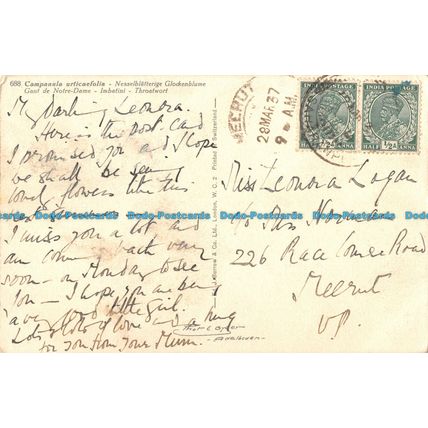 688 Campanula urticaefolia - Nesselblätterige Glockenblume
Gant de Notre-Dame - Imbutini - Throatwort
My Darling Leonora.
Here is the post card
I promised you and I hope
we shall be seeing
lovely flowers like this
I miss you a lot and
am coming back very
soon - on Monday to see
you - I hope you are being
a very good little girl.
Lots & lots of love and a hug
for you from your Mum.
MEERUT
28 MAR. 37
9 A.M.
INDIA POSTAGE
HALF ANNA
INDIA POSTAGE
HALF ANNA
& Co. Ltd., London, W. C. 2 Printed in Switzerland
Miss Leonora Logan
226 Race Course Road
Meerut
U.P.
Dodo-Postcards Dodo-Postcards Dodo-Postcards Dodo-Postcards